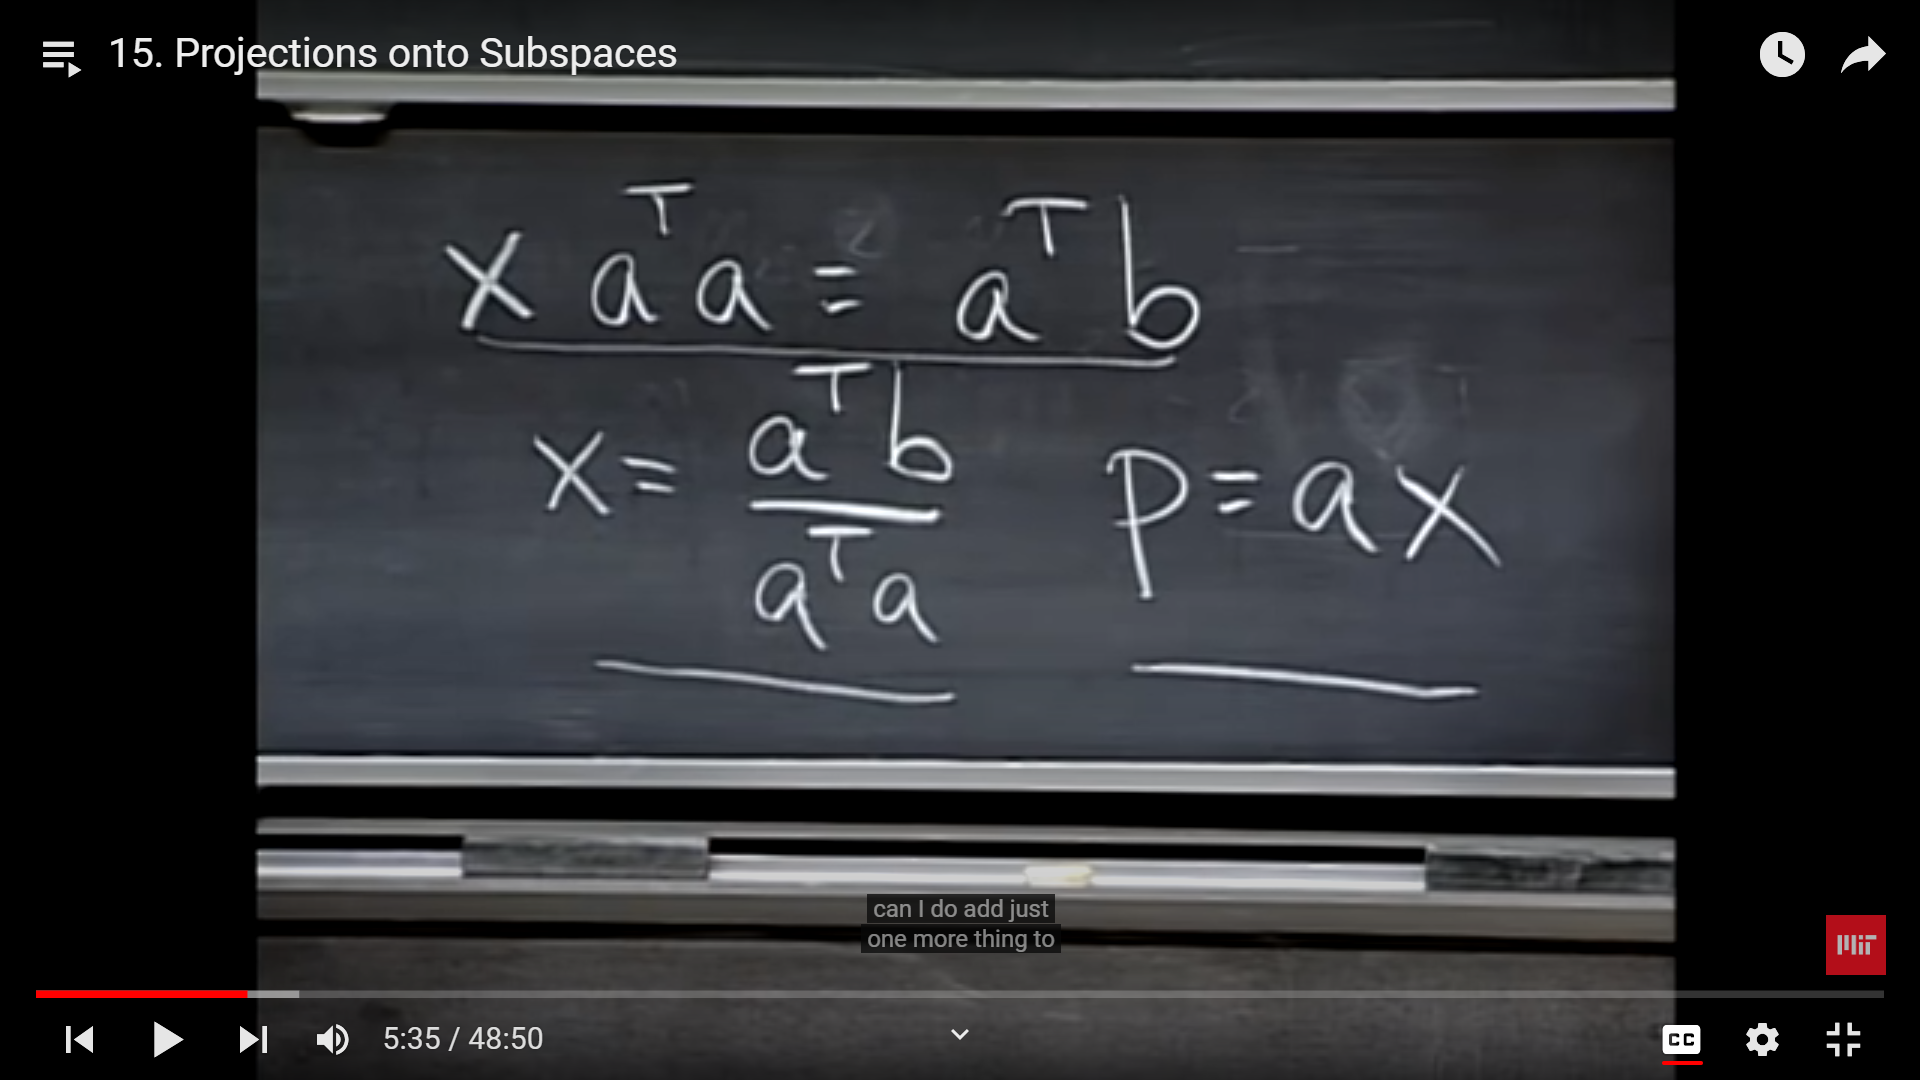 15. Projections onto Subspaces
x aᵀa = aᵀb
x = aᵀb / aᵀa p = ax
can I do add just
one more thing to
MIT
5:35 / 48:50
CC